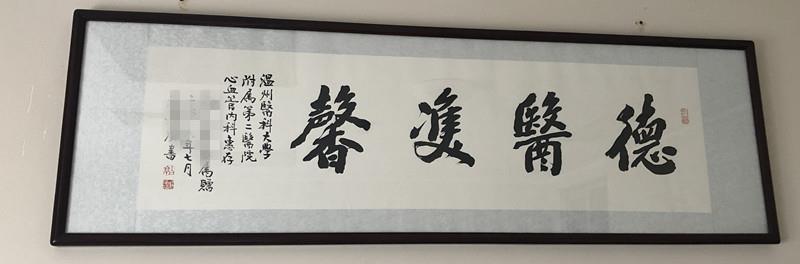 德醫雙馨
温州醫科大學
附属第二醫院
心血管内科惠存
属贈
年七月
書